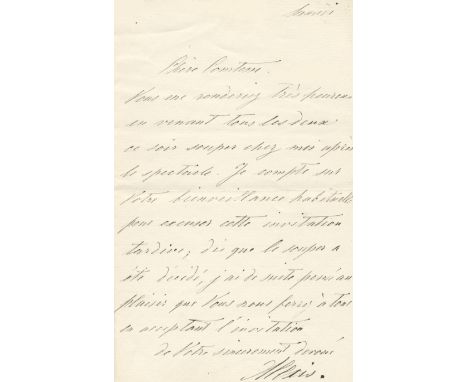 Chère Comtesse.
Vous me rendriez très heureux
en venant tous les deux
ce soir souper chez moi après
le spectacle. Je compte sur
Votre bienveillance habituelle
pour excuser cette invitation
tardive; dès que le souper a
été décidé, j'ai de suite pensé au
plaisir que Vous nous feriez à tous
en acceptant l'invitation
de Votre sincèrement dévoué